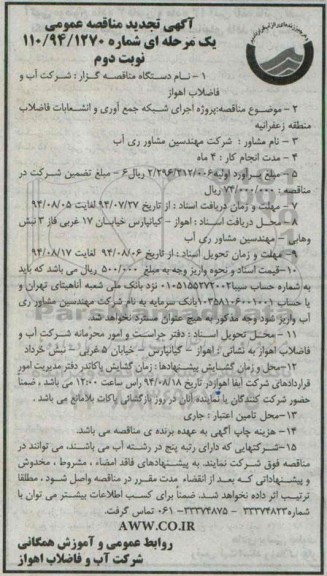 آگهی تجدید مناقصه عمومی
یک مرحله ای شماره ۱۱۰/۹۴/۱۲۷۰
نوبت دوم
۱ - نام دستگاه مناقصه گزار : شرکت آب و
فاضلاب اهواز
۲ - موضوع مناقصه:پروژه اجرای شبکه جمع آوری و انشعابات فاضلاب
منطقه زعفرانیه
۳ - نام مشاور : شرکت مهندسین مشاور ری آب
۴ - مدت انجام کار : ۴ ماه
۵ - مبلغ برآورد اولیه ۲/۲۹۶/۳۱۲/۰۰۶ ریال ۶ - مبلغ تضمین شرکت در
مناقصه : ۷۴/۰۰۰/۰۰۰ ریال
۷ - مهلت و زمان دریافت اسناد : از تاریخ ۹۴/۰۷/۲۷ لغایت ۹۴/۰۸/۰۵
۸ - محل دریافت اسناد : اهواز - کیانپارس خیابان ۱۷ غربی فاز ۳ نبش
وهابی - مهندسین مشاور ری آب
۹ - مهلت و زمان تحویل اسناد : از تاریخ ۹۴/۰۸/۰۶ لغایت ۹۴/۰۸/۱۷
۱۰-قیمت اسناد و نحوه واریز وجه به مبلغ ۵۰۰/۰۰۰ ریال می باشد که باید
به شماره حساب سیبا ۰۱۰۵۱۵۵۲۷۲۰۰۲ نزد بانک ملی شعبه آناهیتای تهران و
یا حساب ۱۰۳۵۸۱۰۶۰۰۱۰۰۱ بانک سرمایه به نام شرکت مهندسین مشاور ری
آب واریز شود وجه مذکور به هیچ عنوان مسترد نخواهد شد
۱۱ - محل تحویل اسناد : دفتر حراست و امور محرمانه شرکت آب و
فاضلاب اهواز به نشانی : اهواز - کیانپارس - خیابان ۵ غربی - نبش خرداد
۱۲-محل و زمان گشایش پیشنهادها : زمان گشایش پاکاتدر دفتر مدیریت امور
قراردادهای شرکت آبفا اهوازدر تاریخ ۹۴/۰۸/۱۸ راس ساعت ۱۲:۰۰ می باشد ، ضمناً
حضور شرکت کنندگان یا نماینده آنان در روز بازگشائی پاکات بلامانع می باشد .
۱۳-محل تامین اعتبار : جاری
۱۴- هزینه چاپ آگهی به عهده برنده ی مناقصه می باشد.
۱۵-شرکتهایی که دارای رتبه پنج در رشته آب می باشند، می توانند در
مناقصه فوق شرکت نمایند به پیشنهادهای فاقد امضاء ، مشروط ، مخدوش
و پیشنهاداتی که بعد از انقضاء مدت مقرر در مناقصه واصل شود ، مطلقا
ترتیب اثر داده نخواهد شد. ضمناً برای کسب اطلاعات بیشتر می توان با
شماره ۳۳۳۷۴۸۲۳ - ۳۳۳۷۴۸۷۵ - ۰۶۱ تماس گرفت.
AWW.CO.IR
روابط عمومی و آموزش همگانی
شرکت آب و فاضلاب اهواز